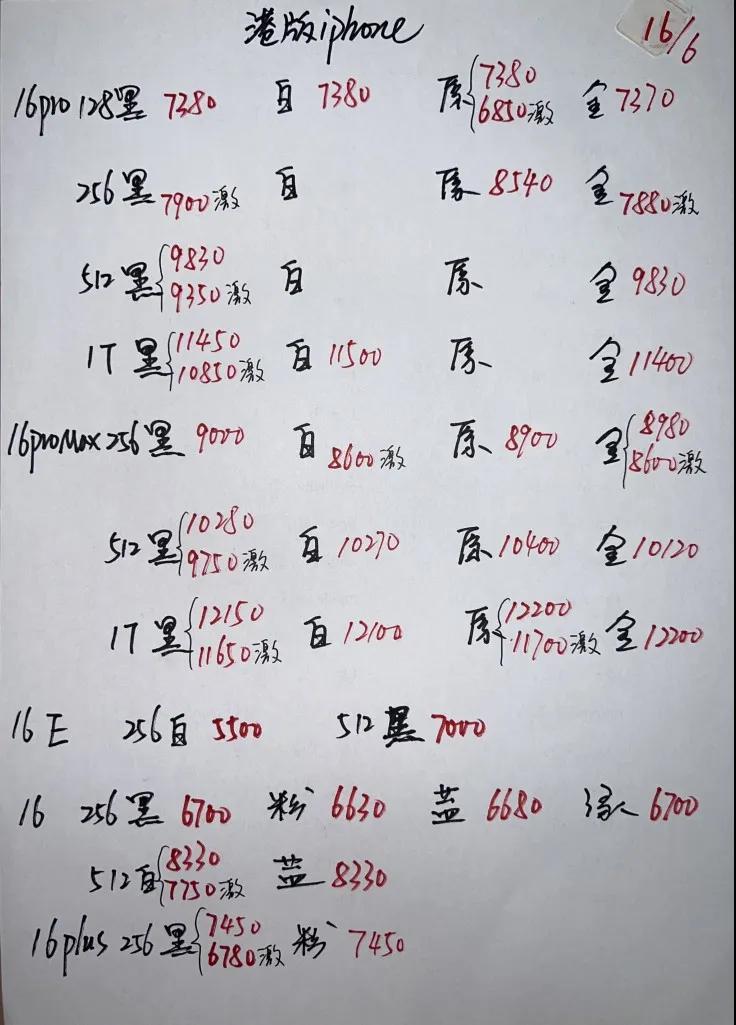 港版iphone 16/6
16pro 128黑 7380 白 7380 原 7380 6850激 金 7370
256黑 7900激 白 原 8540 金 7880激
512黑 9830 9350激 白 原 金 9830
1T 黑 11450 10850激 白 11500 原 金 11400
16proMax 256黑 9000 白 8600激 原 8900 金 8980 8600激
512黑 10280 9750激 白 10270 原 10400 金 10120
1T 黑 12150 11650激 白 12100 原 12200 11700激 金 12200
16E 256白 5500 512黑 7000
16 256黑 6700 粉 6630 蓝 6680 绿 6700
512白 8330 7750激 蓝 8330
16plus 256黑 7450 6780激 粉 7450